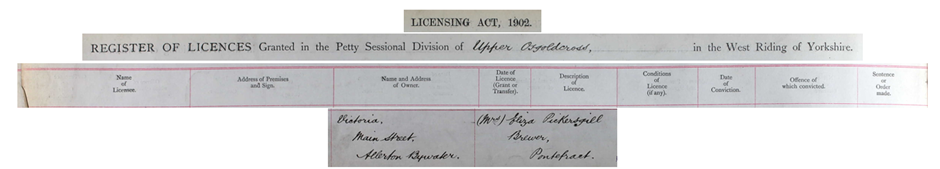 LICENSING ACT, 1902.
REGISTER OF LICENCES Granted in the Petty Sessional Division of Upper Osgoldcross, in the West Riding of Yorkshire.
Name of Licensee.
Address of Premises and Sign.
Name and Address of Owner.
Date of Licence (Grant or Transfer).
Description of Licence.
Conditions of Licence (if any).
Date of Conviction.
Offence of which convicted.
Sentence or Order made.
Victoria,
Main Street,
Allerton Bywater.
(Mrs) Eliza Pickersgill
Brewer,
Pontefract.